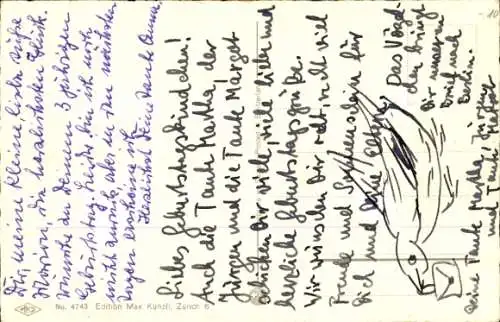 Dir, meine kleine, liebe, süße
Marion, die herzlichsten Glück-
wünsche zu Deinem 3 jährigen
Geburtstag. Leider bin ich noch
nicht zurück, aber in den nächsten
Tagen erscheine ich.
Herzlichst Deine Tante Anna.
Liebes Geburtstagskindchen!
Auch die Tante Martha, der
Jürgen und die Tante Margot
schicken Dir viele, viele liebe und
herzliche Geburtstagsgrüße.
Wir wünschen Dir recht, recht viel
Freude und Sonnenschein für
Dich und Deine Eltern.
Das Vögel-
chen bringt
Dir unseren
Brief nach
Berlin.
Deine Tante Martha, Jürgen
und Tante
No. 4743 Edition Max Künzli, Zürich 6